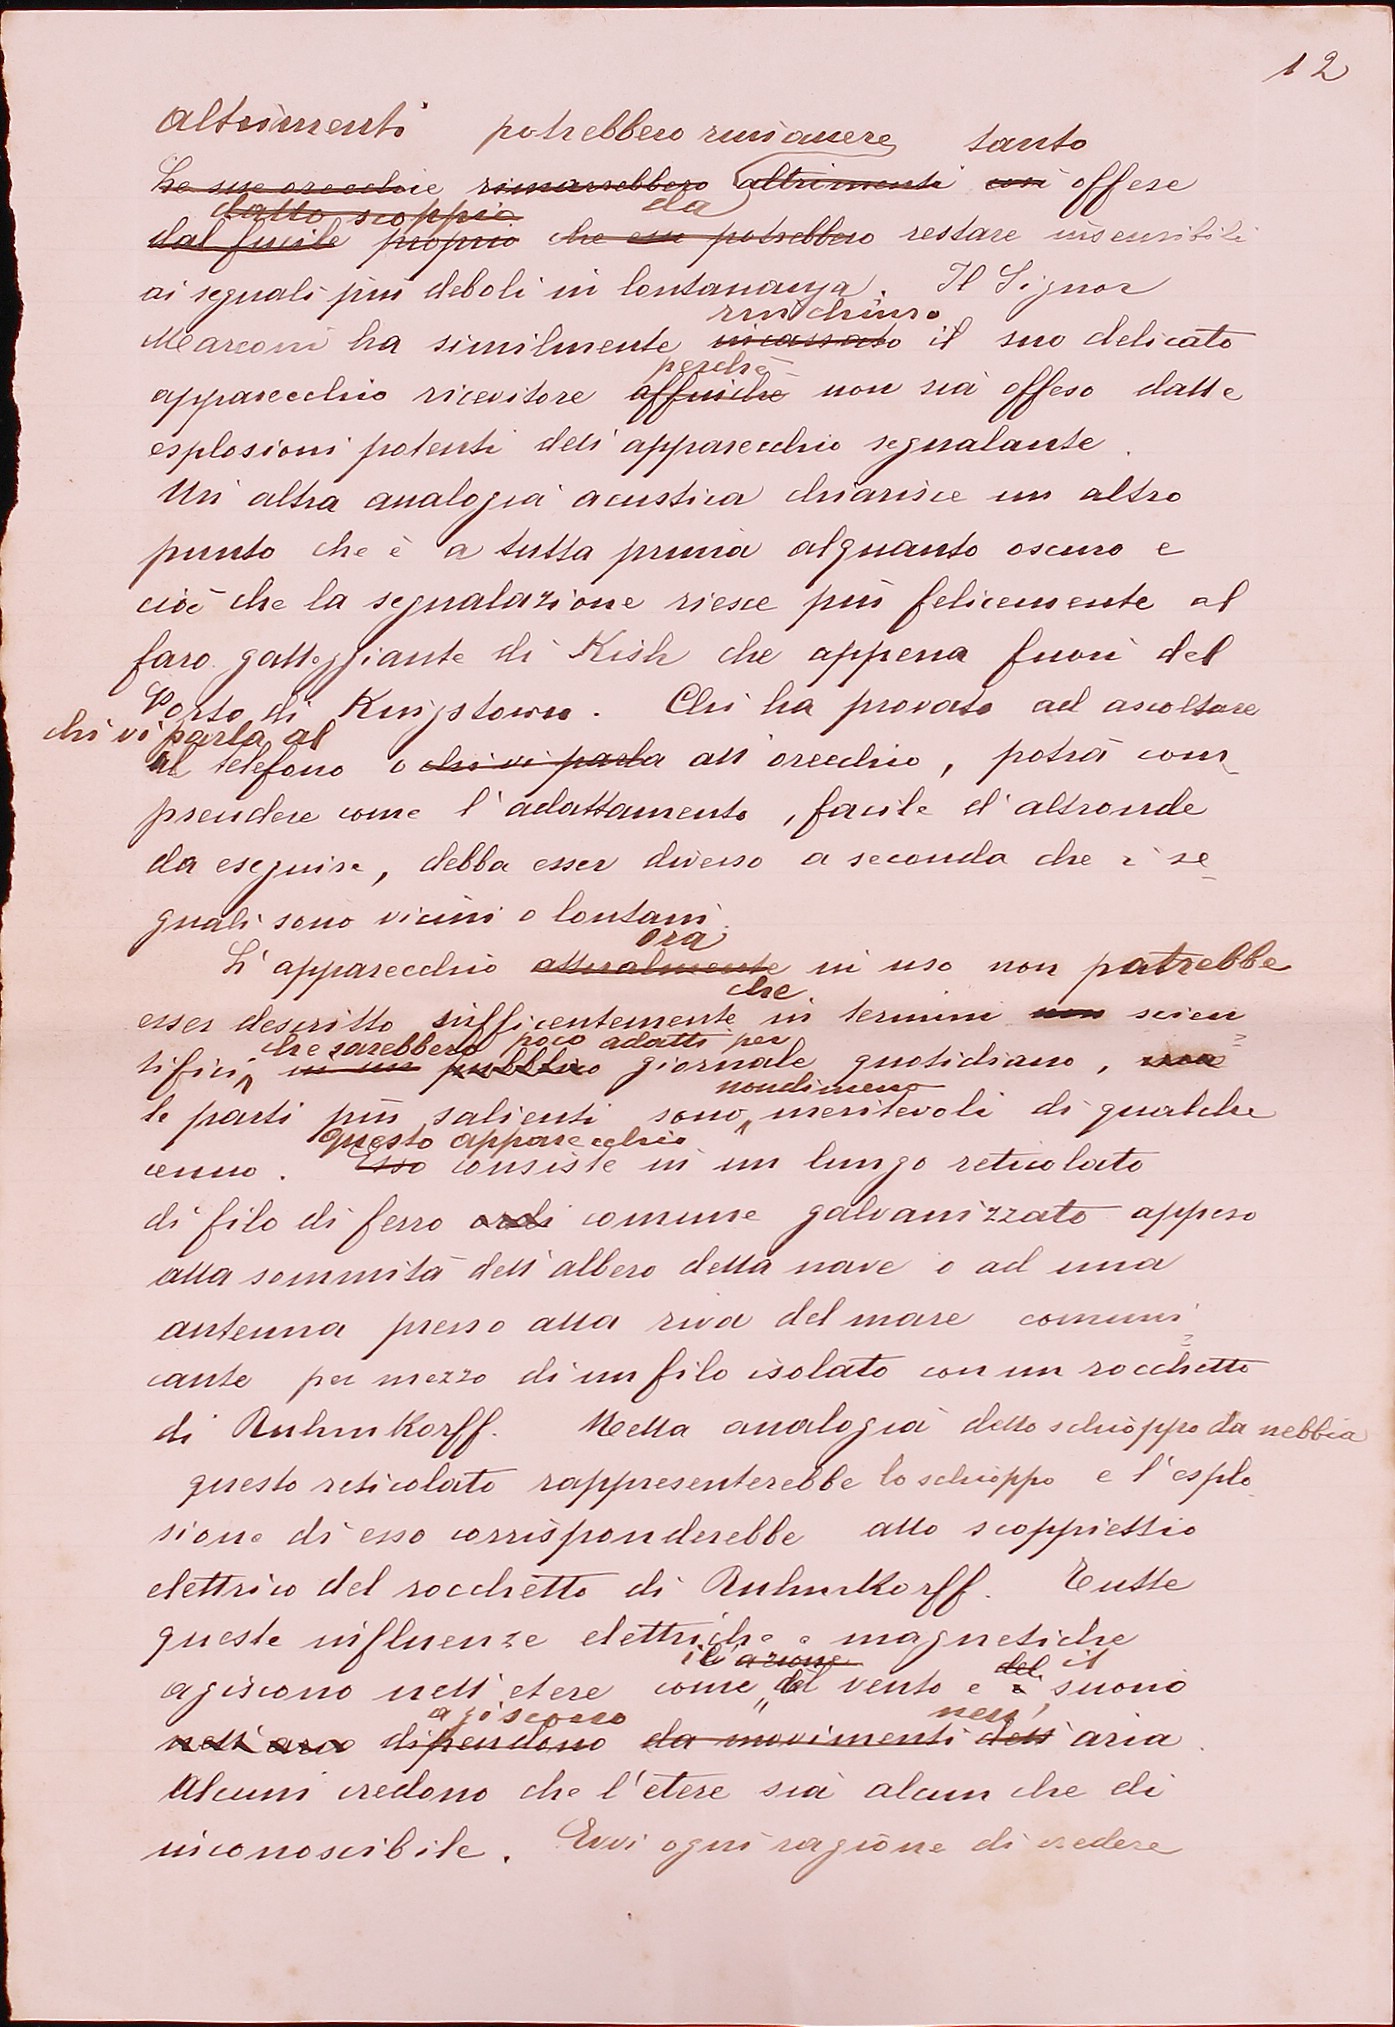 12
altrimenti potrebbero rimanere tanto
Le sue orecchie rimarrebbero altrimenti così offese
dallo scoppio da
dal fucile proprio che esse potrebbero restare insensibili
ai segnali più deboli in lontananza. Il Signor
rinchiuso
Marconi ha similmente incassato il suo delicato
perchè
apparecchio ricevitore affinchè non sia offeso dalle
esplosioni potenti dell'apparecchio segnalante.
Un altra analogia acustica chiarisce un altro
punto che è a tutta prima alquanto oscuro e
cioè che la segnalazione riesce più felicemente al
faro galleggiante di Kish che appena fuori del
Porto di Kingstown. Chi ha provato ad ascoltare
chi vi parla al
al telefono o chi vi parla all'orecchio, potrà com
prendere come l'adattamento, facile d'altronde
da eseguire, debba esser diverso a seconda che i se
gnali sono vicini o lontani.
ora
L'apparecchio attualmente in uso non potrebbe
che
esser descritto sufficentemente in termini non scien
che sarebbero poco adatti per
tifici in un pubblico giornale quotidiano, ma
nondimeno
le parti più salienti sono meritevoli di qualche
questo apparecchio
cenno. Esso consiste in un lungo reticolato
di filo di ferro comune galvanizzato appeso
alla sommità dell'albero della nave o ad una
antenna presso alla riva del mare comuni
cante per mezzo di un filo isolato con un rocchetto
di Ruhmkorff. Nella analogia dello schioppo da nebbia
questo reticolato rappresenterebbe lo schioppo e l'esplo
sione di esso corrisponderebbe allo scoppiettio
elettrico del rocchetto di Ruhmkorff. Tutte
queste influenze elettriche o magnetiche
il l'azione del il
agiscono nell'etere come del vento e i suono
agiscono nell'
nell'aria dipendono da movimenti dell'aria.
Alcuni credono che l'etere sia alcun che di
inconoscibile. Evvi ogni ragione di credere